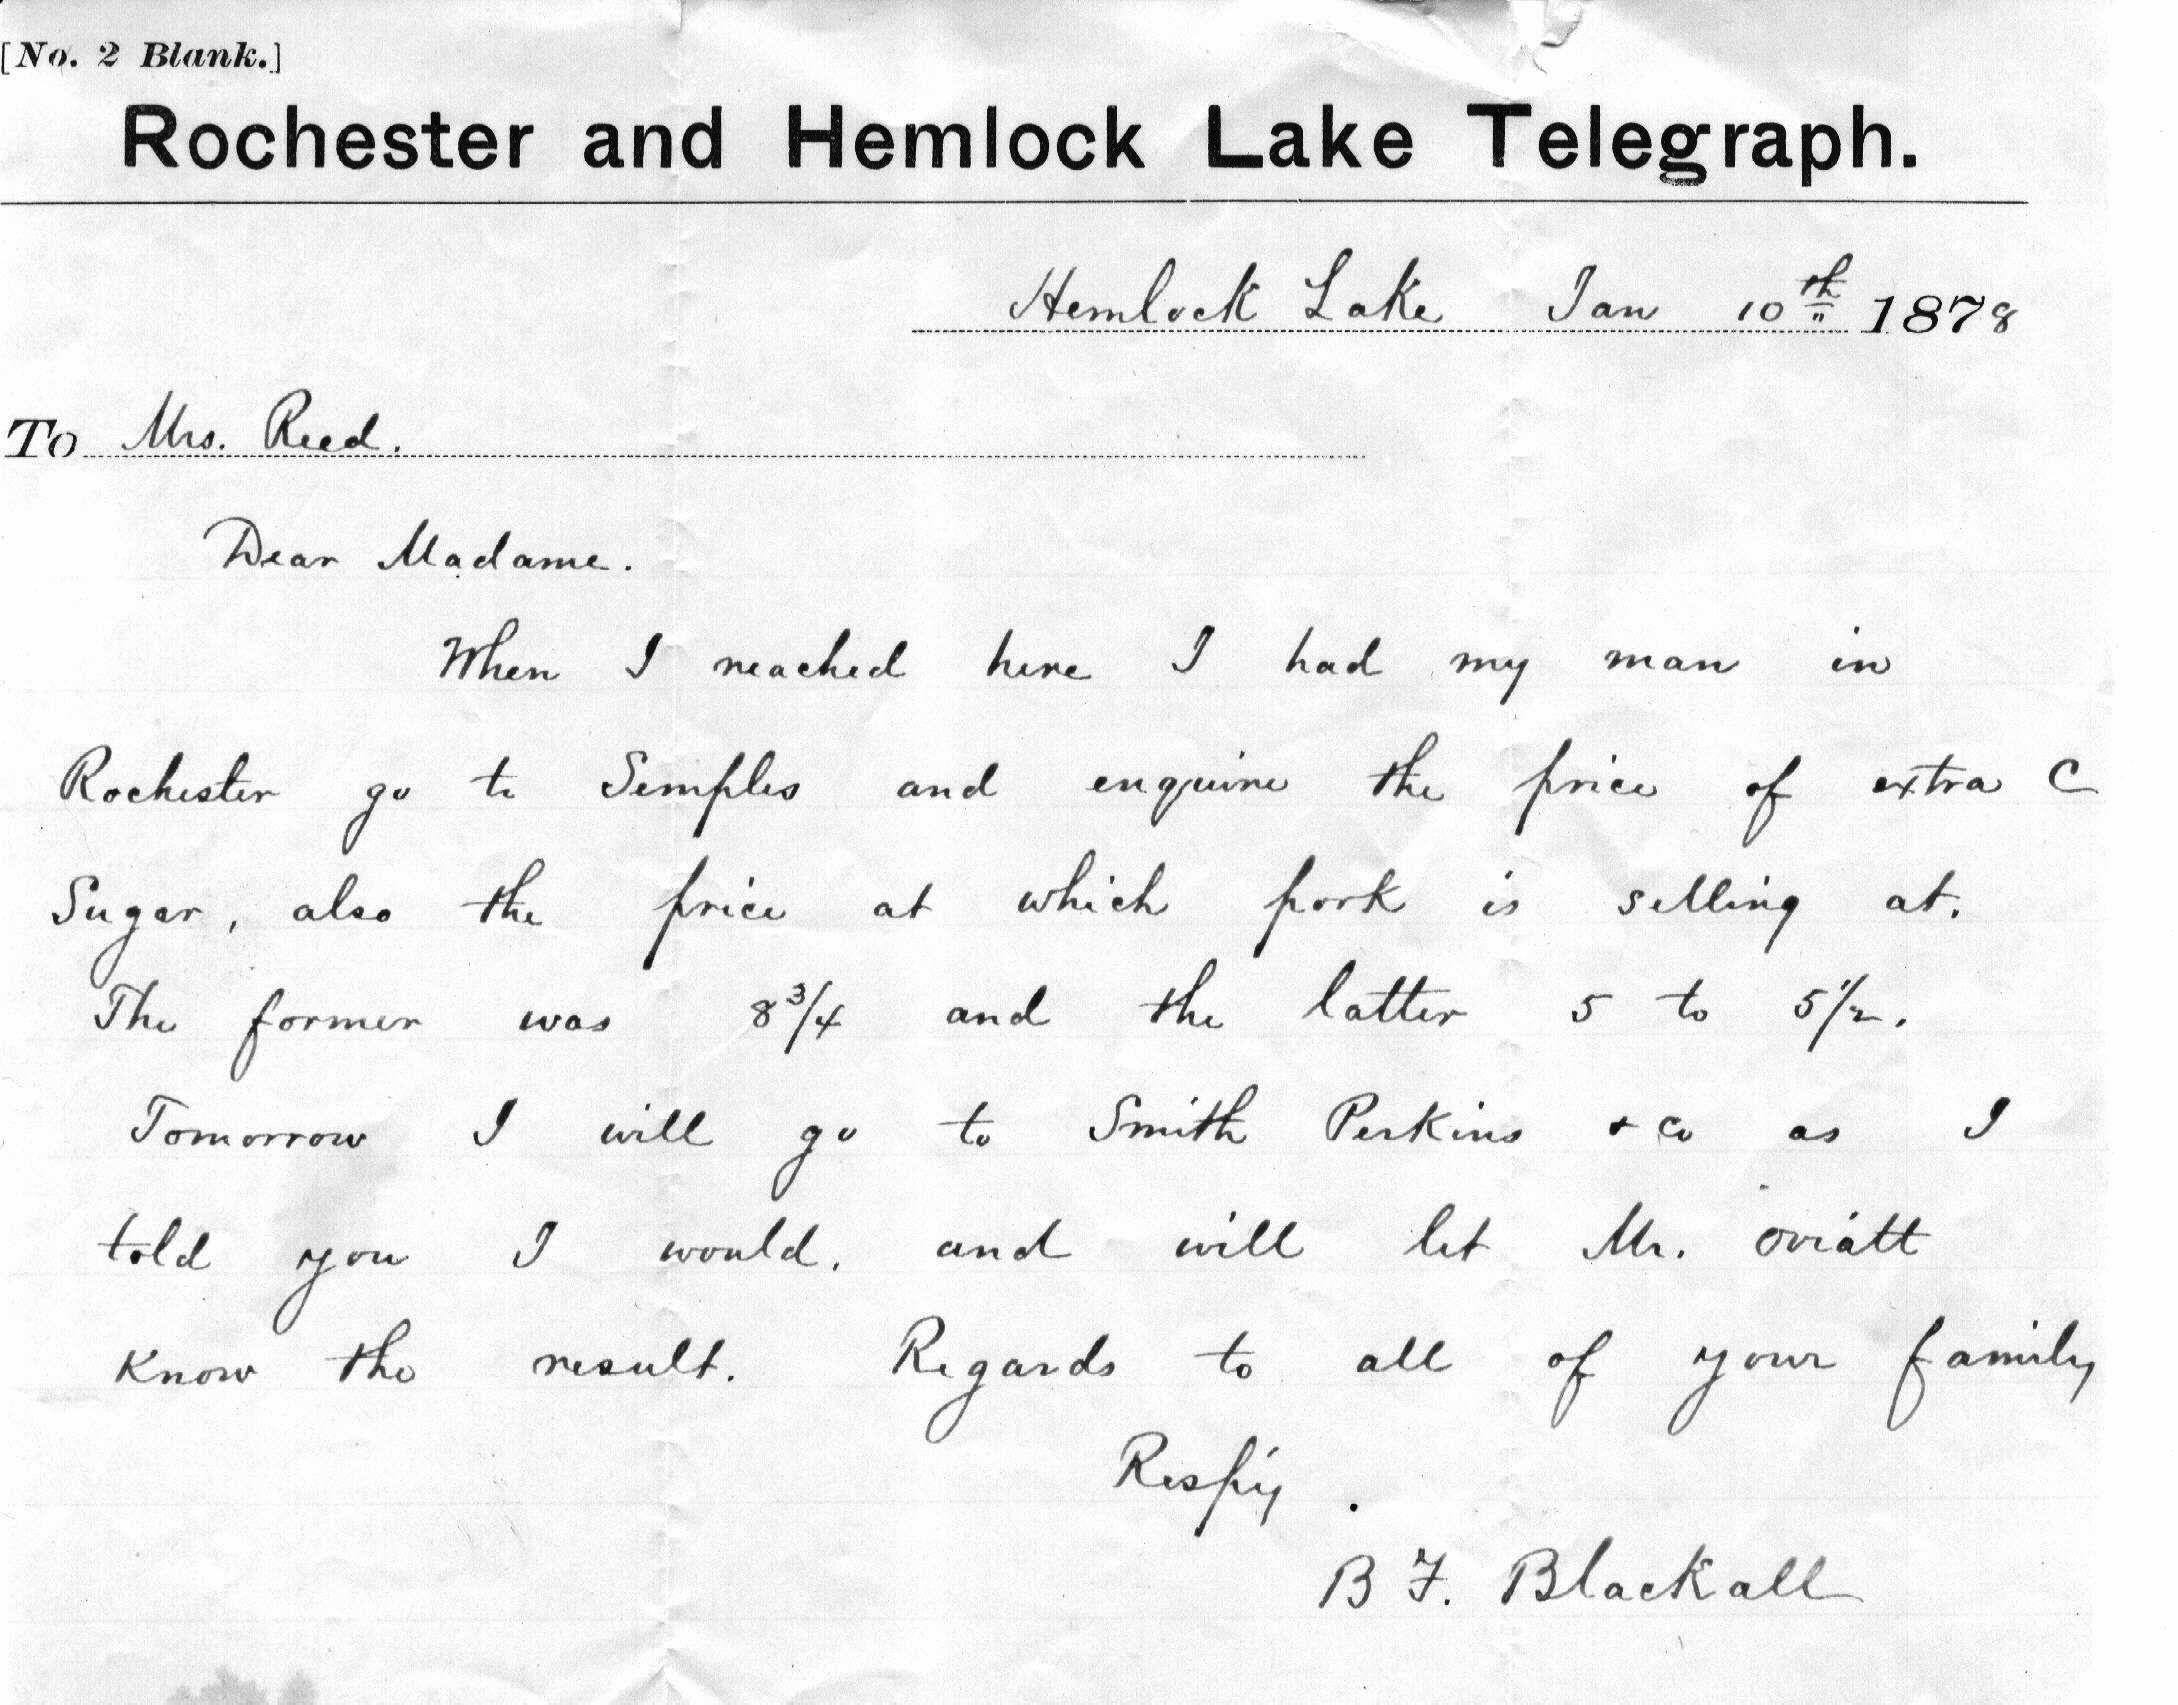 [No. 2 Blank.]
Rochester and Hemlock Lake Telegraph.
Hemlock Lake Jan 10th 1878
To Mrs. Reed.
Dear Madame.
When I reached here I had my man in
Rochester go to Semples and enquire the price of extra C
Sugar, also the price at which pork is selling at.
The former was 8 3/4 and the latter 5 to 5 1/2.
Tomorrow I will go to Smith Perkins & Co as I
told you I would. and will let Mr. Oviatt
Know the result. Regards to all of your family
Respy.
B F. Blackall